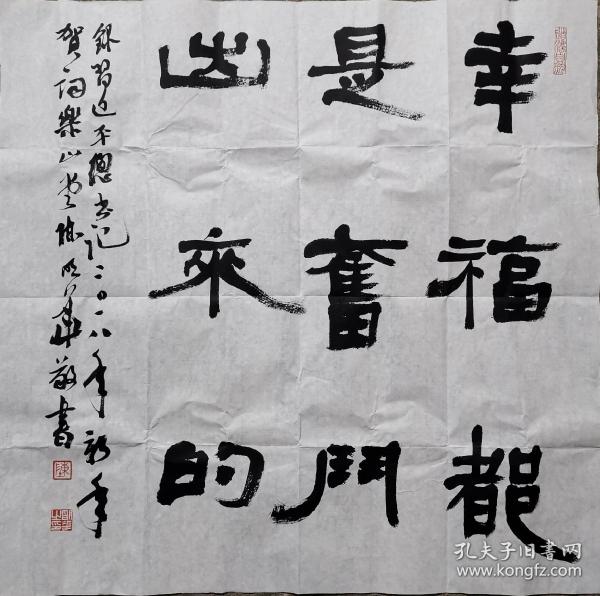 幸福都
是奮鬥
出來的
錄習近平總书记二〇一八年新年
賀词樂山堂陳明華敬書
孔夫子旧書网
www.kongfz.com